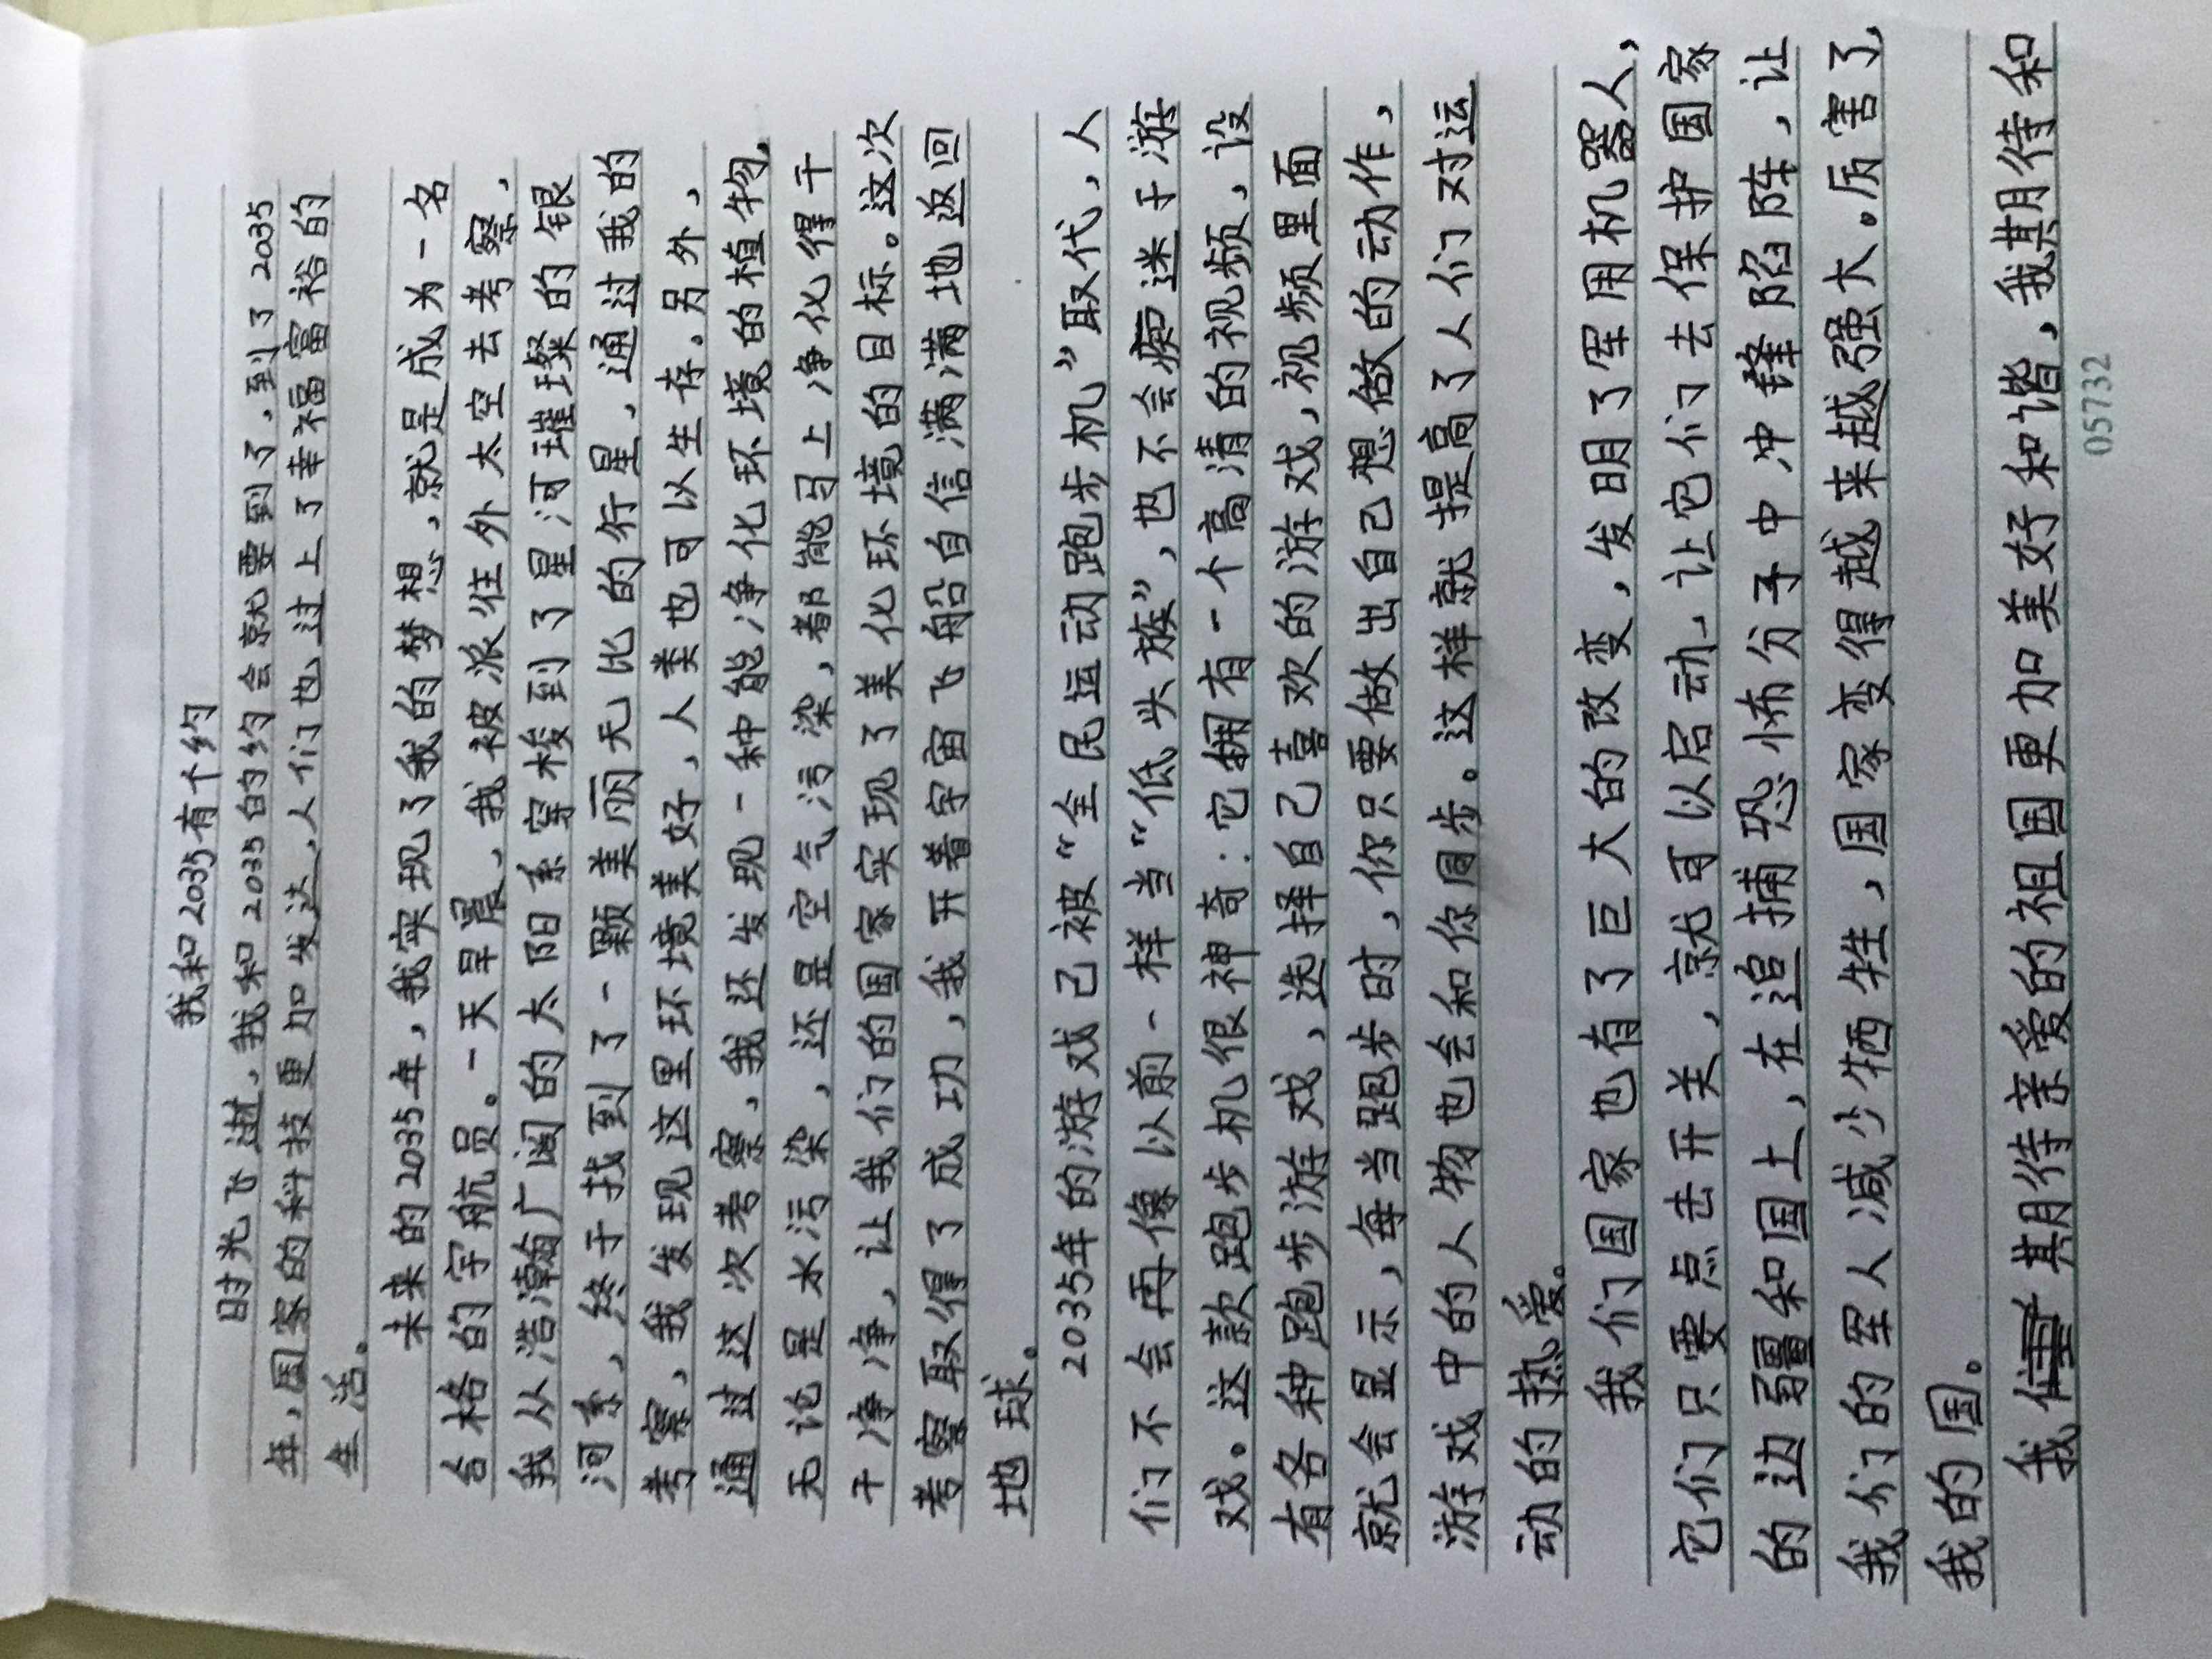 我和2035有个约
时光飞逝，我和2035的约会就要到了，到了2035
年，国家的科技更加发达，人们也过上了幸福富裕的
生活。
未来的2035年，我实现了我的梦想，就是成为一名
合格的宇航员。一天早晨，我被派往外太空去考察，
我从浩瀚广阔的太阳系穿梭到了星河璀璨的银
河系，终于找到了一颗美丽无比的行星，通过我的
考察，我发现这里环境美好，人类也可以生存。另外，
通过这次考察，我还发现一种能净化环境的植物，
无论是水污染，还是空气污染，都能马上净化得干
干净净，让我们的国家实现了美化环境的目标。这次
考察取得了成功，我开着宇宙飞船自信满满地返回
地球。
2035年的游戏已被“全民运动跑步机”取代，人
们不会再像以前一样当“低头族”，也不会痴迷于游
戏。这款跑步机很神奇：它拥有一个高清的视频，设
有各种跑步游戏，选择自己喜欢的游戏，视频里面
就会显示，每当跑步时，你只要做出自己想做的动作，
游戏中的人物也会和你同步。这样就提高了人们对运
动的热爱。
我们国家也有了巨大的改变，发明了军用机器人，
它们只要点击开关，就可以启动，让它们去保护国家
的边疆和国土，在追捕恐怖分子中冲锋陷阵，让
我们的军人减少牺牲，国家变得越来越强大。厉害了，
我的国。
我期待亲爱的祖国更加美好和谐，我期待和
05732